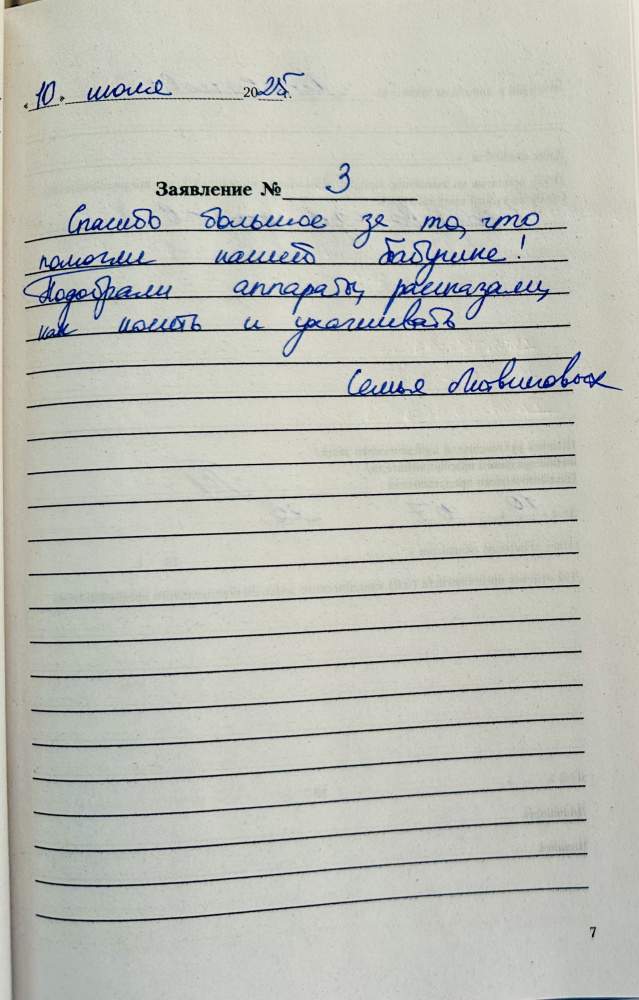 «10» июля 2025 г.
Заявление № 3
Спасибо большое за то, что
помогли нашей бабушке!
Подобрали аппараты, рассказали,
как носить и ухаживать
Семья Литвиновых
7